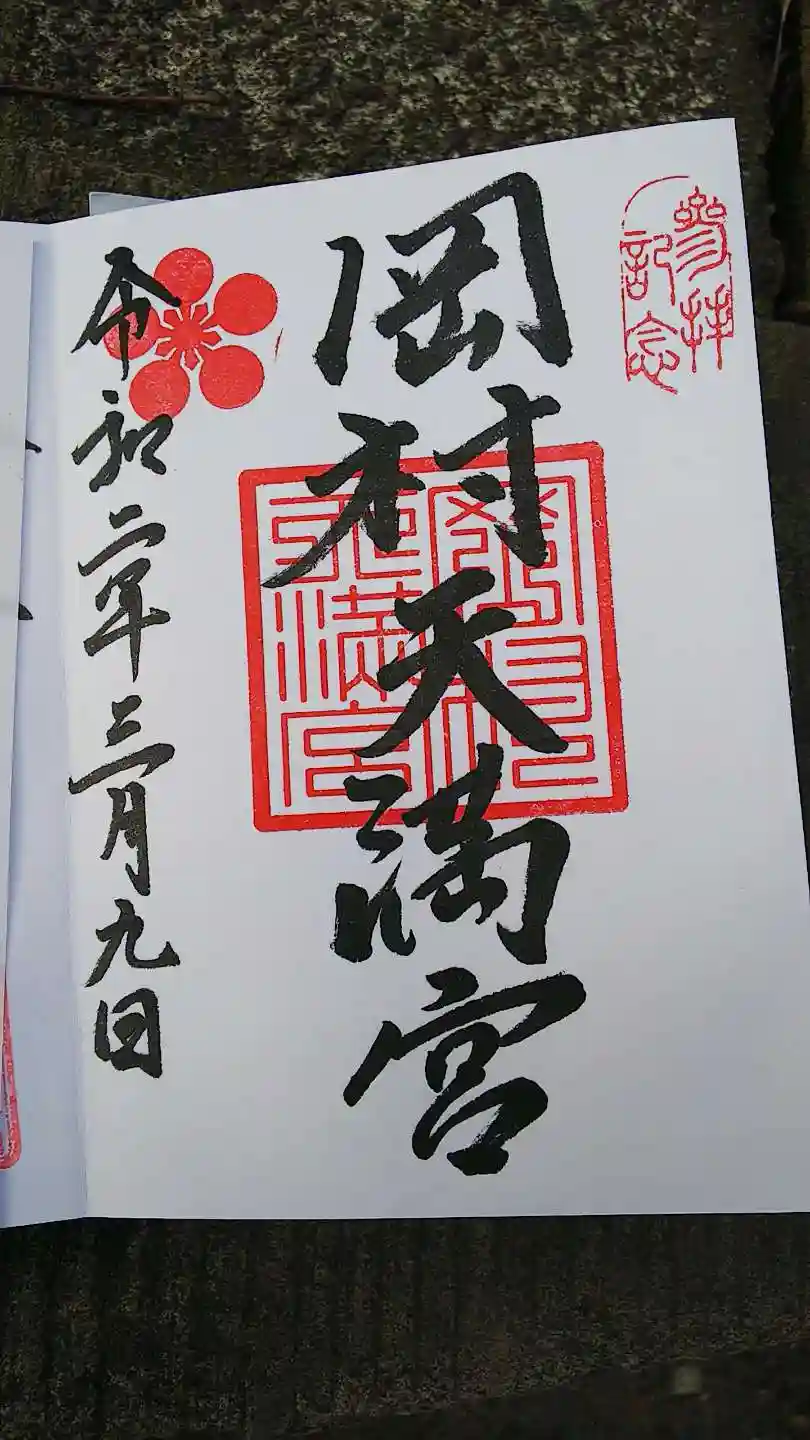 參拝
記念
岡村天満宮
天満宮
令和二年三月九日